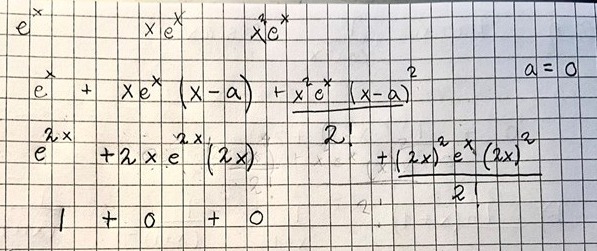 eˣ xeˣ x²eˣ
a = 0
eˣ + xeˣ (x-a) + x²eˣ (x-a)² / 2!
e²ˣ + 2xe²ˣ (2x) + (2x)²eˣ (2x)² / 2!
1 + 0 + 0